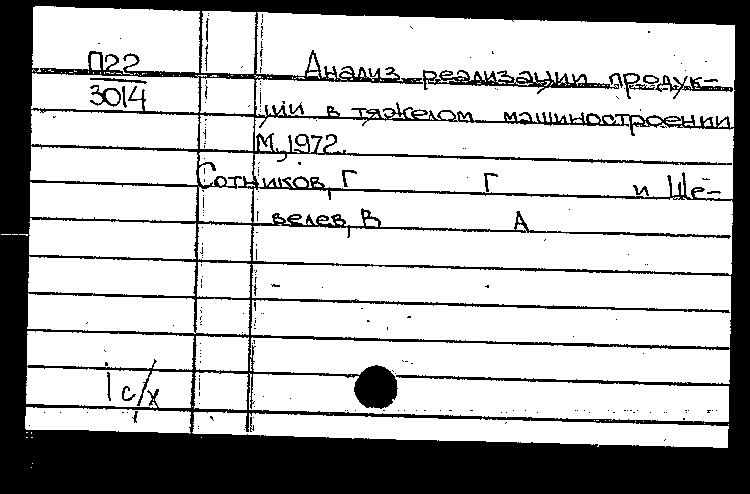 П22
3014
Анализ реализации продук-
ции в тяжелом машиностроении
М., 1972.
Сотников, Г Г и Ше-
велев, В А
1 с/х